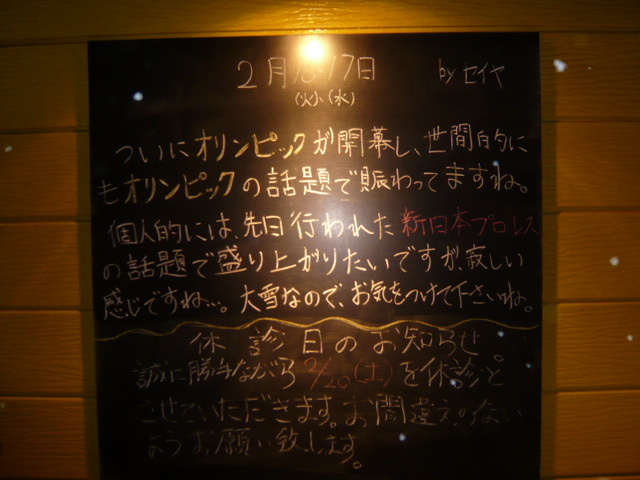 2月16,17日 by セイヤ
(火)(水)
ついにオリンピックが開幕し、世間的に
もオリンピックの話題で賑わってますね。
個人的には、先日行われた新日本プロレス
の話題で盛り上がりたいですが、寂しい
感じですね…。大雪なので、お気をつけて下さいね。
休診日のお知らせ。
誠に勝手ながら2/20(土)を休診と
させていただきます。お間違えのない
ようお願い致します。